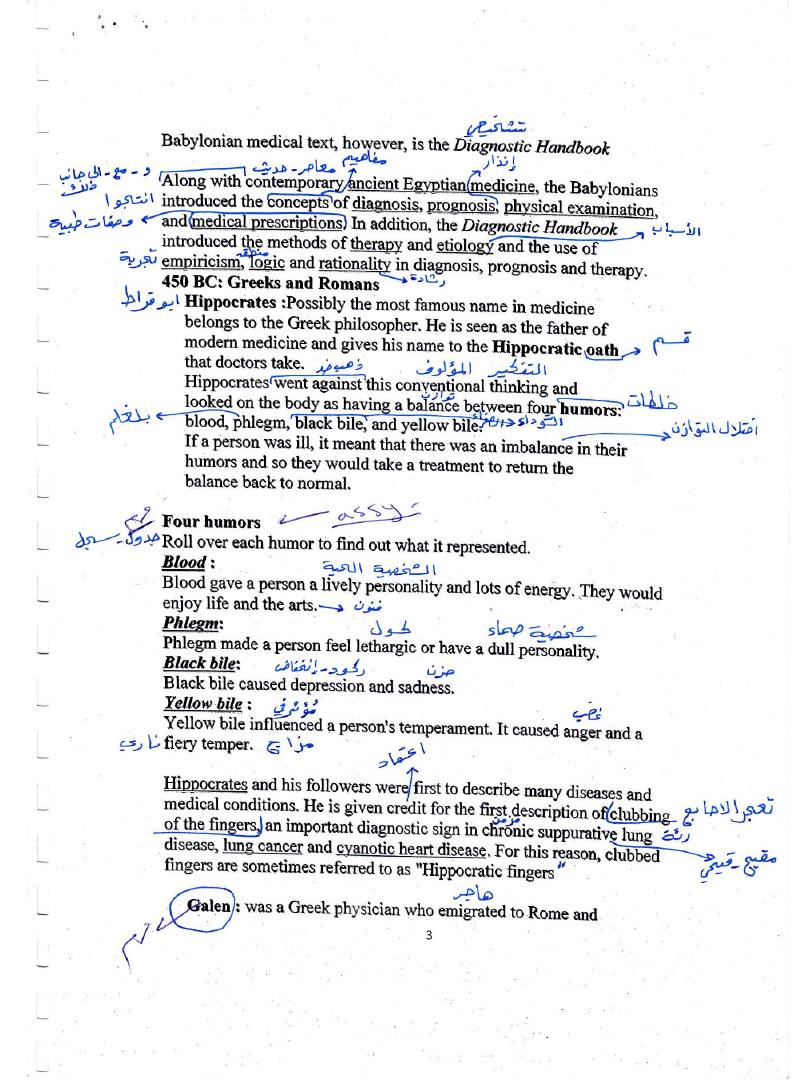 تشخيصي
Babylonian medical text, however, is the Diagnostic Handbook
و - مع - الى جانب ذلك معاصر - حديث مفاهيم إنذار
Along with contemporary ancient Egyptian medicine, the Babylonians
introduced the concepts of diagnosis, prognosis, physical examination,
وصفات طبية and medical prescriptions. In addition, the Diagnostic Handbook الأسباب
introduced the methods of therapy and etiology and the use of
تجربة منطقة
empiricism, logic and rationality in diagnosis, prognosis and therapy.
450 BC: Greeks and Romans رشادة
ابو قراط Hippocrates :Possibly the most famous name in medicine
belongs to the Greek philosopher. He is seen as the father of
modern medicine and gives his name to the Hippocratic oath قسم
that doctors take. ذهب ضد المؤلوف التفكير
Hippocrates went against this conventional thinking and
توازن
looked on the body as having a balance between four humors: خلطات
بلغم blood, phlegm, black bile, and yellow bile. السوداء
اختلال التوازن
If a person was ill, it meant that there was an imbalance in their
humors and so they would take a treatment to return the
balance back to normal.
Four humors assy
جدول - سجل Roll over each humor to find out what it represented.
Blood : الشخصية الحية
Blood gave a person a lively personality and lots of energy. They would
enjoy life and the arts. فنون
Phlegm: خمول شخصية صماء
Phlegm made a person feel lethargic or have a dull personality.
Black bile: ركود - إنخفاض حزن
Black bile caused depression and sadness.
Yellow bile : غضب
Yellow bile influenced a person's temperament. It caused anger and a
ناري fiery temper. مزاج
اعتماد
Hippocrates and his followers were first to describe many diseases and
medical conditions. He is given credit for the first description of clubbing تعجر الاصابع
مزمن
of the fingers, an important diagnostic sign in chronic suppurative lung رئة
disease, lung cancer and cyanotic heart disease. For this reason, clubbed مقيح - قيحي
fingers are sometimes referred to as "Hippocratic fingers"
هاجر
Galen : was a Greek physician who emigrated to Rome and
3